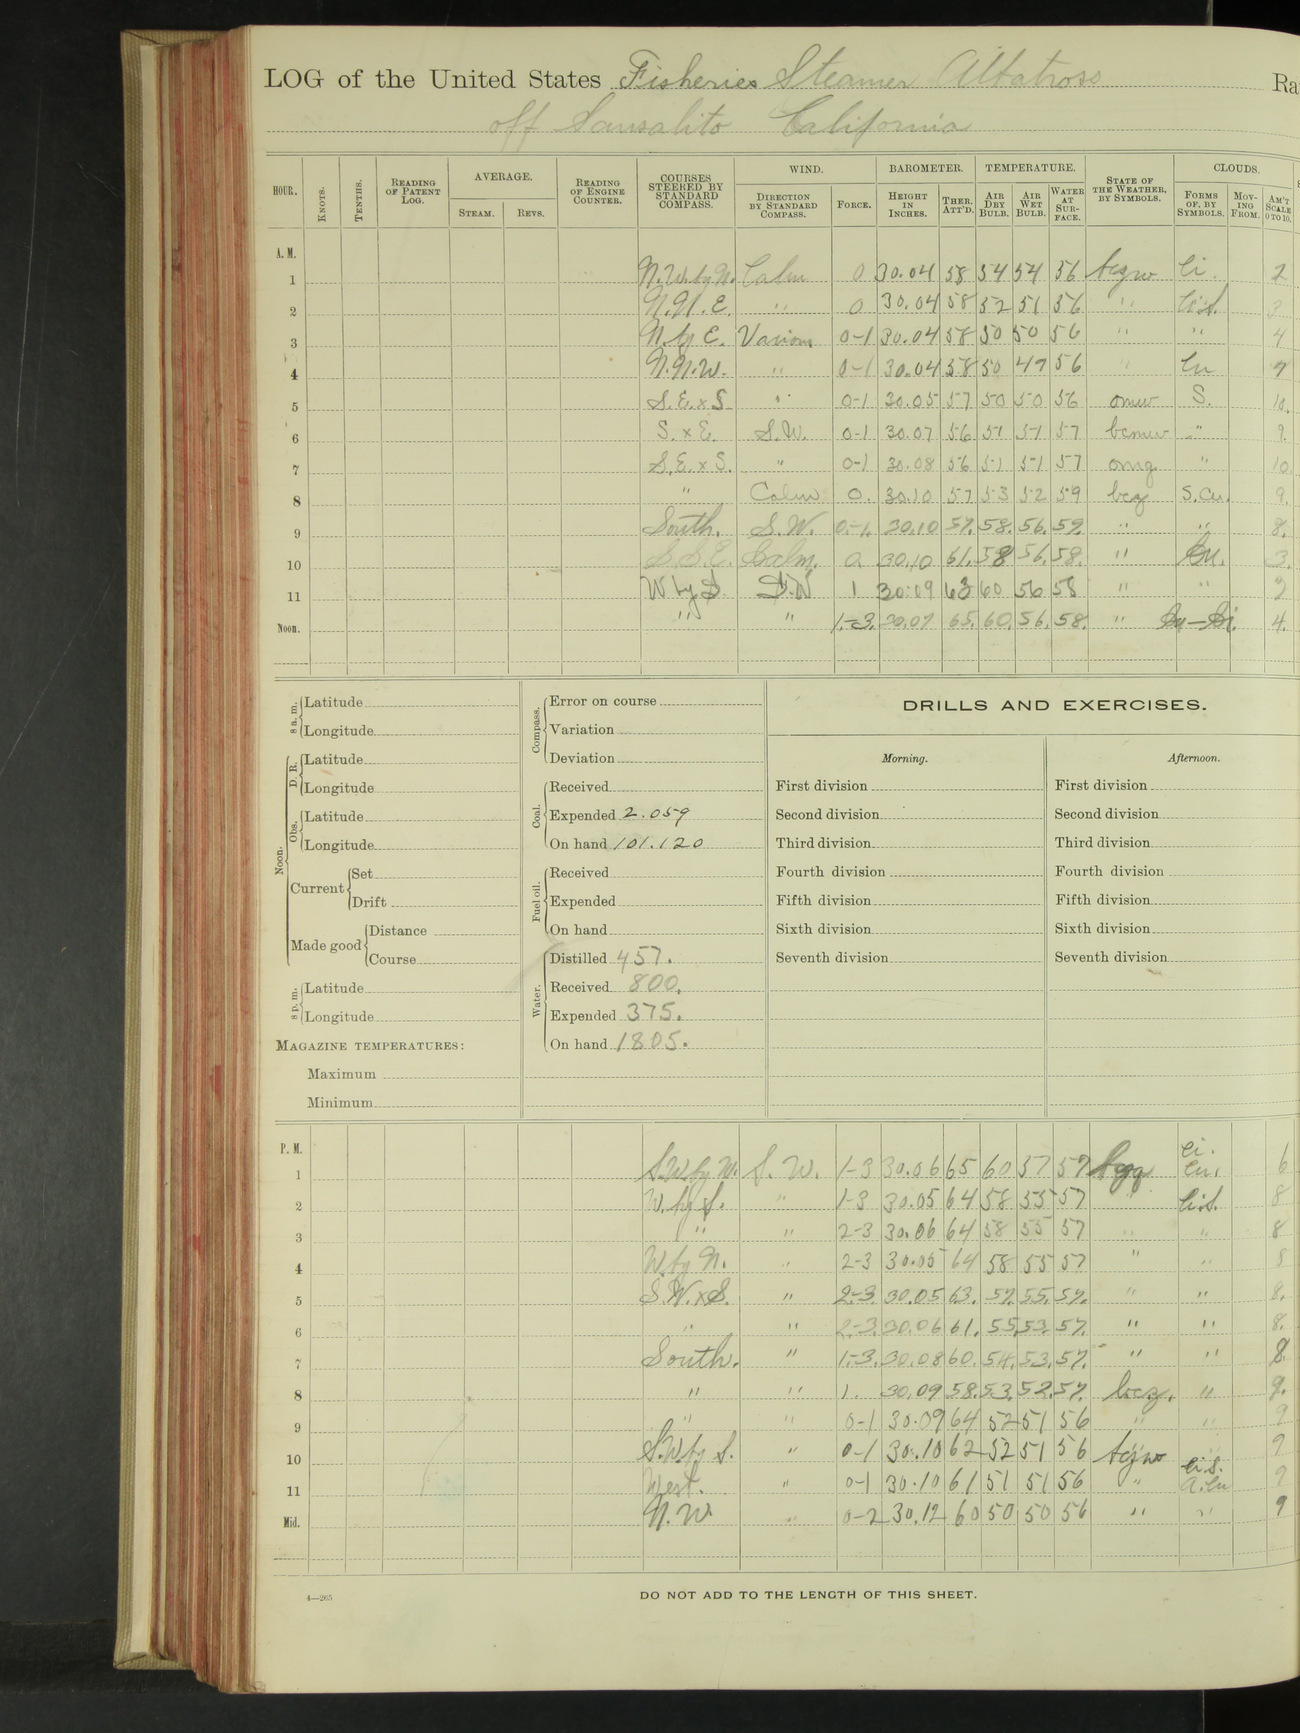 LOG of the United States Fisheries Steamer Albatross Ra
off Sausalito California
HOUR. KNOTS. TENTHS. READING OF PATENT LOG. AVERAGE. STEAM. REVS. READING OF ENGINE COUNTER. COURSES STEERED BY STANDARD COMPASS. WIND. DIRECTION BY STANDARD COMPASS. FORCE. BAROMETER. HEIGHT IN INCHES. THER. ATT'D. TEMPERATURE. AIR DRY BULB. AIR WET BULB. WATER AT SURFACE. STATE OF THE WEATHER, BY SYMBOLS. CLOUDS. FORMS OF, BY SYMBOLS. MOVING FROM. AM'T SCALE 0 TO 10.
A. M.
1 N.W. by N. Calm 0 30.04 58 54 54 56 Ci. 2
2 N.N.E. " 0 30.04 58 52 51 56 " Ci.S. 3
3 N by E. Various 0-1 30.04 58 50 50 56 " " 4
4 N.N.W. " 0-1 30.04 58 50 49 56 " Cu
5 S.E. x S. " 0-1 30.05 57 50 50 56 omw S. 10.
6 S. x E. S.W. 0-1 30.07 56 51 51 57 bcmw " 9.
7 S.E. x S. " 0-1 30.08 56 51 51 57 omg " 10
8 " Calm 0. 30.10 57 53 52 59 bcz S.Cu. 9.
9 South. S.W. 0-1. 30.10 57. 58. 56. 59. " " 8.
10 S.S.E. Calm. 0. 30.10 61. 58 56. 58. " Cu. 3.
11 W by S S.W 1 30.09 63 60 56 58 " "
Noon. " " 1-3. 30.07 65. 60. 56. 58. " Cu-Ci. 4.
8 a. m. Latitude
Longitude
Noon. D. R. Latitude
Longitude
Obs. Latitude
Longitude
Current Set
Drift
Made good Distance
Course
8 p. m. Latitude
Longitude
MAGAZINE TEMPERATURES:
Maximum
Minimum
Compass. Error on course
Variation
Deviation
Coal. Received
Expended 2.059
On hand 101.120
Fuel oil. Received
Expended
On hand
Water. Distilled 457.
Received 800.
Expended 375.
On hand 1805.
DRILLS AND EXERCISES.
Morning. Afternoon.
First division First division
Second division Second division
Third division Third division
Fourth division Fourth division
Fifth division Fifth division
Sixth division Sixth division
Seventh division Seventh division
P. M.
1 S.W. by W. S.W. 1-3 30.06 65 60 57 57 Ci. Cu. 6
2 W. by S. " 1-3 30.05 64 58 55 57 " Ci.S. 8
3 " " 2-3 30.06 64 58 55 57 " " 8
4 W. by N. " 2-3 30.05 64 58 55 57 " " 8
5 S.W. x S. " 2-3. 30.05 63. 57. 55. 57. " " 8.
6 " " 2-3. 30.06 61. 55. 53. 57. " " 8.
7 South. " 1-3. 30.08 60. 54. 53. 57. " " 8.
8 " " 1. 30.09 58. 53. 52. 57. bcz. " 9.
9 " " 0-1 30.09 64 52 51 56 " " 9
10 S.W. by S. " 0-1 30.10 62 52 51 56 " 9
11 West. " 0-1 30.10 61 51 51 56 " Ci.S. A.Cu 9
Mid. N.W. " 0-2 30.12 60 50 50 56 " " 9
4—265
DO NOT ADD TO THE LENGTH OF THIS SHEET.